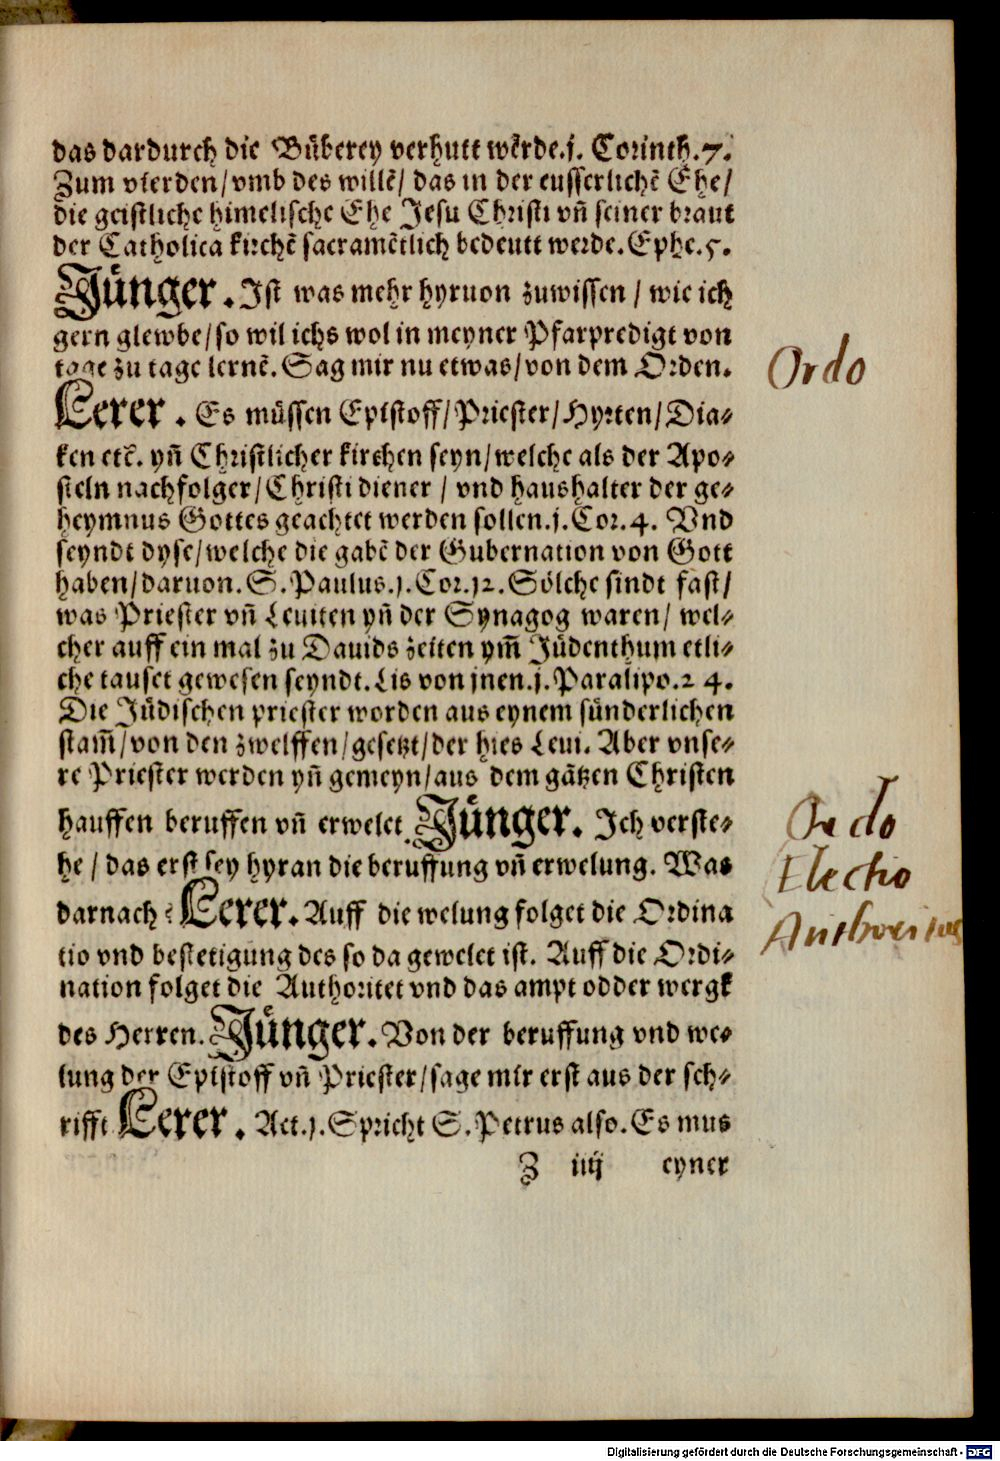 das dardurch die Bůberey verhutt wẽrde.j. Corinth.7.
Zum vierden/vmb des willẽ/ das in der eusserlichẽ Ehe/
die geistliche himelische Ehe Jesu Christi vñ seiner braut
der Catholica kirchẽ sacramẽtlich bedeutt werde.Ephe.5.
Jünger. Ist was mehr hyruon zuwissen / wie ich
gern glewbe/so wil ichs wol in meyner Pfarpredigt von
tage zu tage lernẽ. Sag mir nu etwas/von dem Orden.
Ordo
Lerer. Es müssen Epistoff/Priester/Hyrten/Dia⸗
ken etc̃. yñ Christlicher kirchen seyn/welche als der Apo⸗
steln nachfolger/Christi diener / vnd haushalter der ge⸗
heymnus Gottes geachtet werden sollen.j.Cor.4. Vnd
seyndt dyse/welche die gabẽ der Gubernation von Gott
haben/daruon. S. Paulus.j.Cor.j2. Sölche sindt fast/
was Priester vñ Leuiten yñ der Synagog waren/ wel⸗
cher auff ein mal zu Dauids zeiten ym̃ Jüdenthum etli⸗
che tauset gewesen seyndt.Lis von jnen.j.Paralipo.24.
Die Jüdischen priester worden aus eynem sünderlichen
stam̃/von den zwelffen/gesetzt/der hies Leui. Aber vnse⸗
re Priester werden yñ gemeyn/aus dem gãtzen Christen
hauffen beruffen vñ erwelet. Jünger. Ich verste⸗
he / das erst sey hyran die beruffung vñ erwelung. Was
darnach? Lerer. Auff die welung folget die Ordina
tio vnd bestetigung des so da gewelet ist. Auff die Ordi⸗
nation folget die Authoritet vnd das ampt odder wergk
des Herren. Jünger. Von der beruffung vnd we⸗
lung der Epistoff vñ Priester/sage mir erst aus der sch⸗
rifft Lerer. Act.j. Spricht S. Petrus also. Es mus
Ordo
Electio
Authoritas
Z iiij eyner
Digitalisierung gefördert durch die Deutsche Forschungsgemeinschaft - DFG